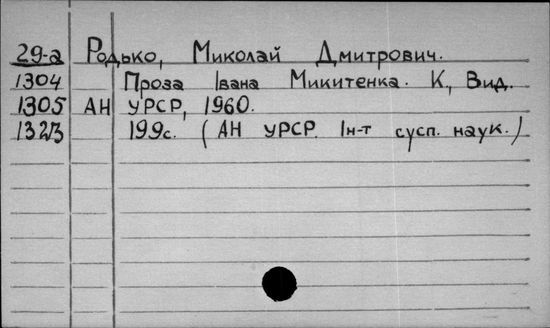 29-а Родько, Миколай Дмитрович.
1304 Проза Івана Микитенка. К., Вид.
1305 АН УРСР, 1960.
132/3 199с. (АН УРСР. Ін-т сусп. наук.)